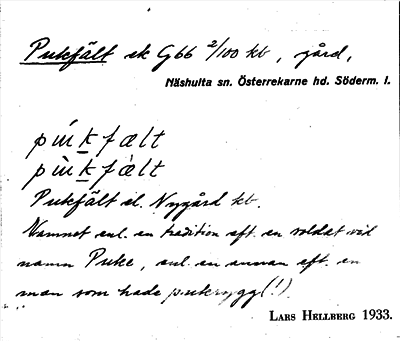 Pukfält ek G66 2/100 kb, gård,
Näshulta sn. Österrekarne hd. Söderm. l.
pu̍kfælt
pu̍̀kfæ̀lt
Pukfält el. Nygård kb.
Namnet enl. en tradition eft. en soldat vid
namn Puke, enl. en annan eft. en
man som hade pukrygg(!).
LARS HELLBERG 1933.